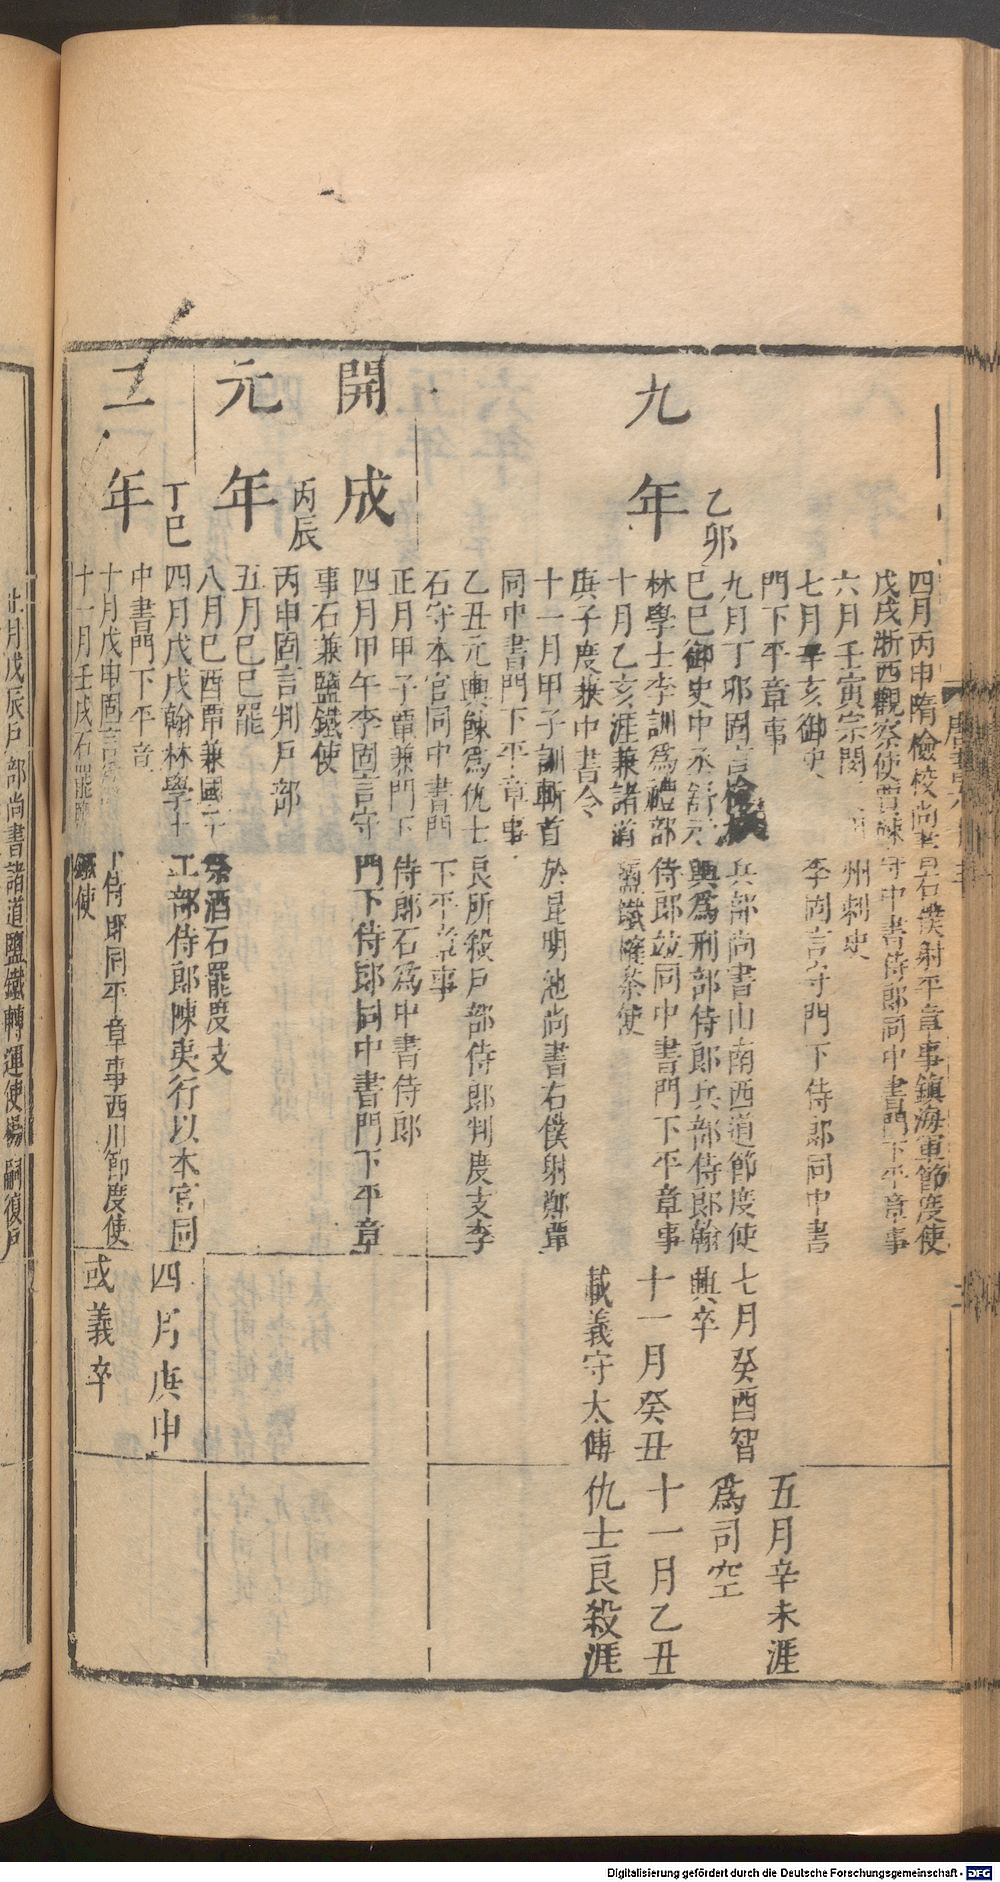 九年
乙卯
四月丙申隋檢校尚書右僕射平章事鎮海軍節度使
戊戌浙西觀察使賈餗守中書侍郎同中書門下平章事
六月壬寅宗閔 州刺史
七月辛亥御史 李固言守門下侍郎同中書
門下平章事
九月丁卯固言檢校兵部尚書山南西道節度使
己巳御史中丞舒元輿爲刑部侍郎兵部侍郎翰
林學士李訓爲禮部侍郎竝同中書門下平章事
十月乙亥涯兼諸道鹽鐵榷茶使
庚子度兼中書令
十一月甲子訓斬首於昆明池尚書右僕射鄭覃
同中書門下平章事
乙丑元輿餗爲仇士良所殺戶部侍郎判度支李
石守本官同中書門下平章事
七月癸酉智
興卒
十一月癸丑
載義守太傅
五月辛未涯
爲司空
十一月乙丑
仇士良殺涯
開成
元年
丙辰
正月甲子覃兼門下侍郎石爲中書侍郎
四月甲午李固言守門下侍郎同中書門下平章
事石兼鹽鐵使
丙申固言判戶部
五月己巳罷
八月己酉覃兼國子祭酒石罷度支
二年
丁巳
四月戊戌翰林學士工部侍郎陳夷行以本官同
中書門下平章
十月戊申固言 門下侍郎同平章事西川節度使
十一月壬戌石罷鹽鐵使
四月庚申
或義卒
正月戊辰戶部尚書諸道鹽鐵轉運使楊嗣復戶
Digitalisierung gefördert durch die Deutsche Forschungsgemeinschaft - DFG